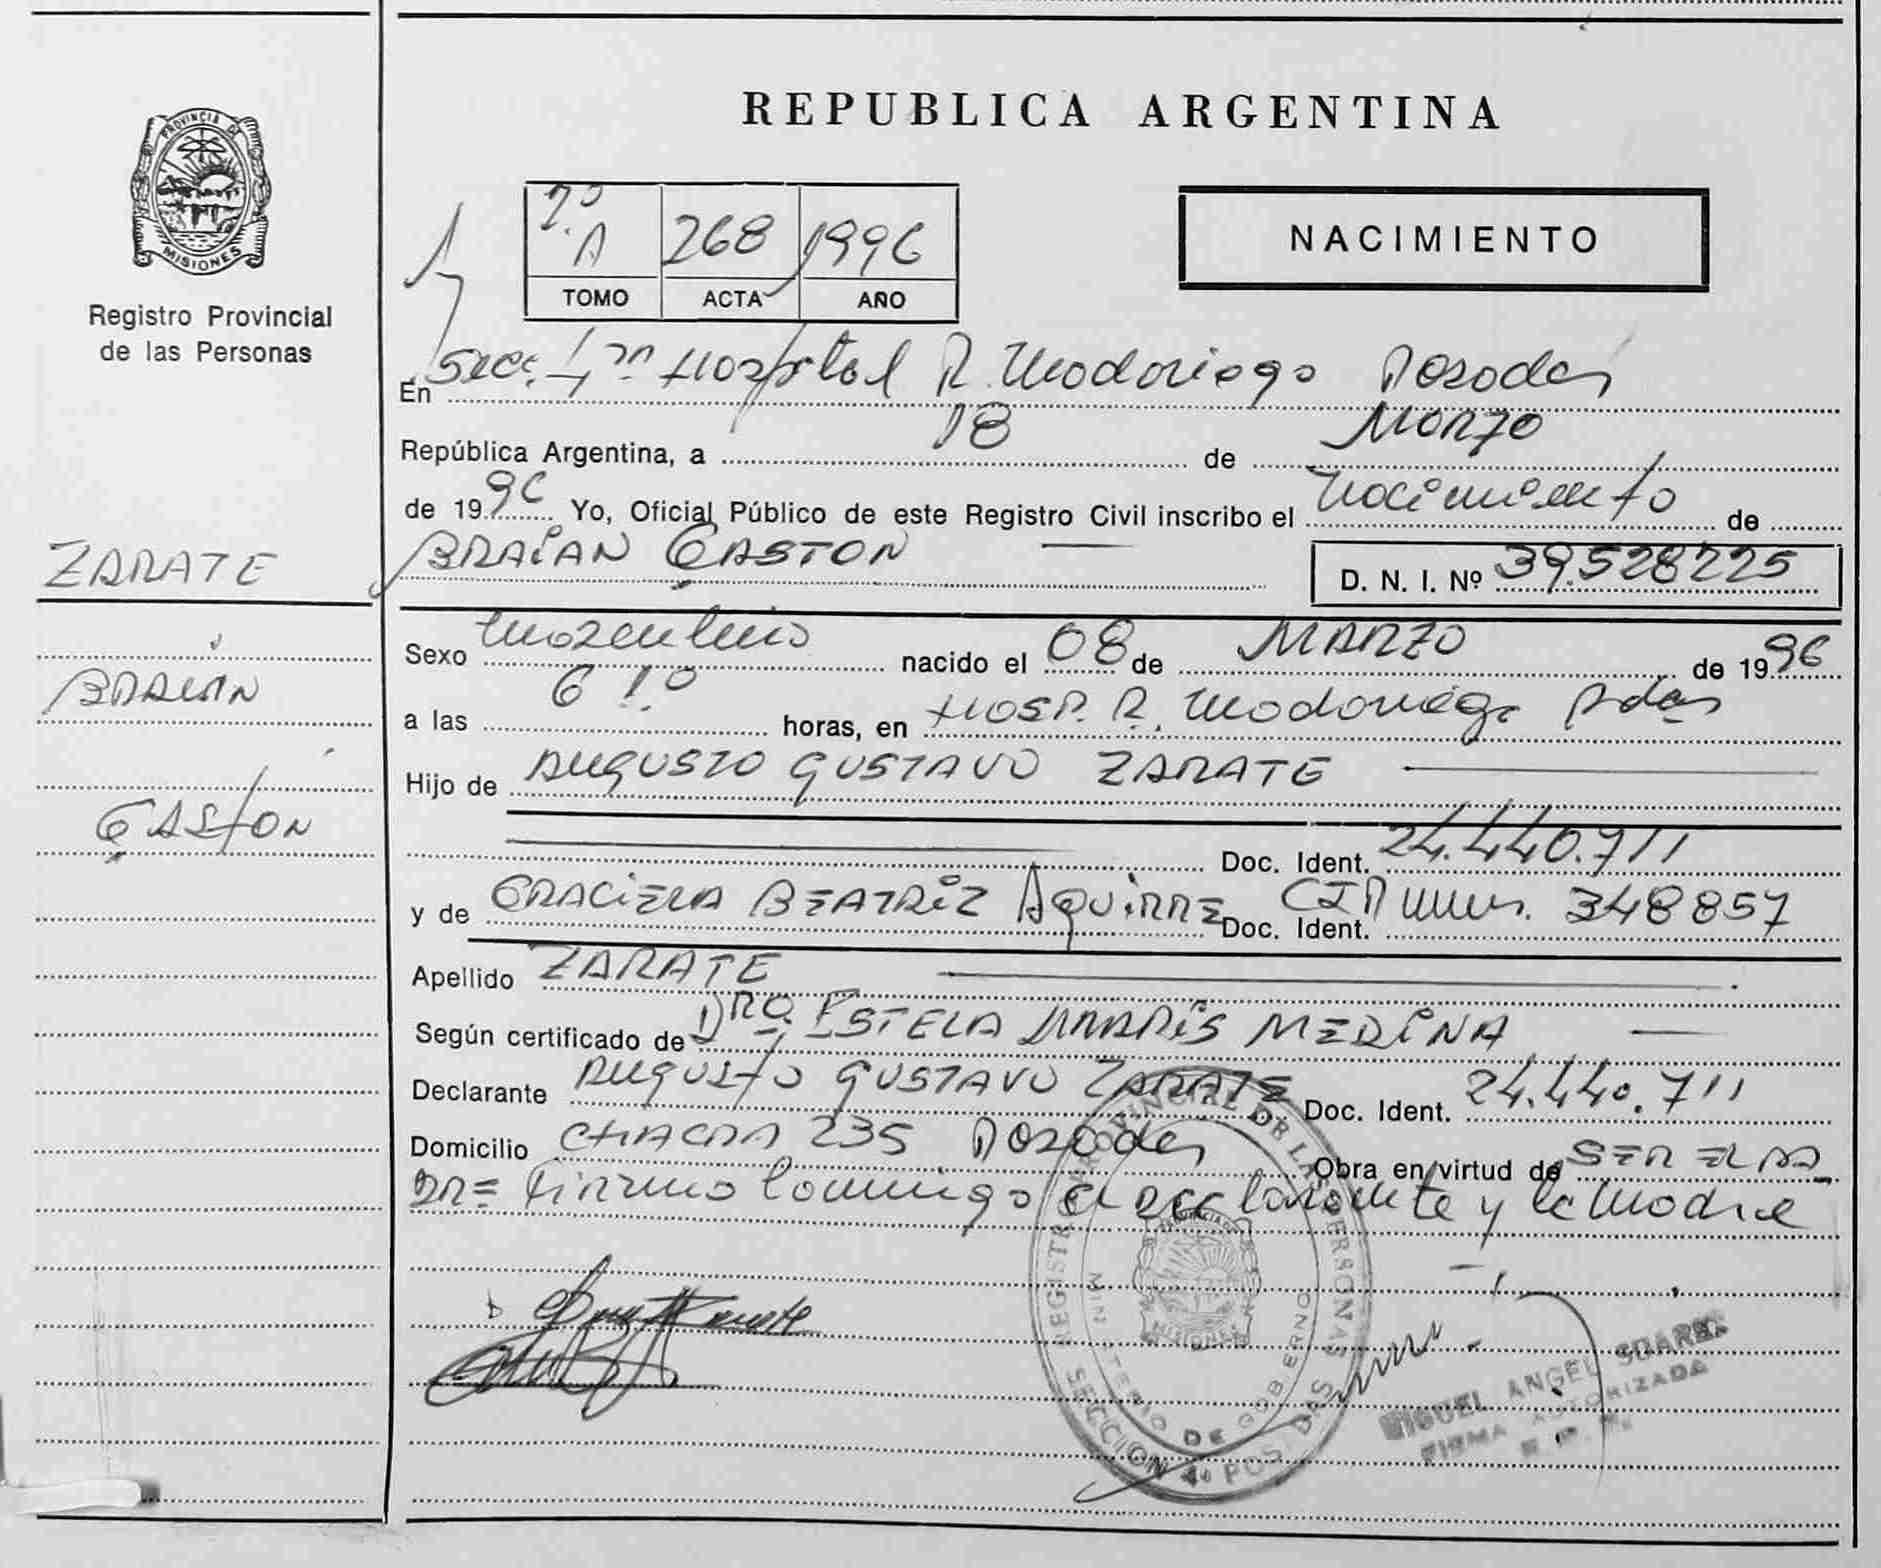 REPUBLICA ARGENTINA
PROVINCIA DE
MISIONES
Registro Provincial
de las Personas
NACIMIENTO
2º A 268 1996
TOMO ACTA AÑO
En Secc. Hospital R. Madariaga Posadas
República Argentina, a 18 de Marzo
de 1996 Yo, Oficial Público de este Registro Civil inscribo el nacimiento de
ZARATE
BRAIAN GASTON D. N. I. Nº 39.528225
Sexo masculino nacido el 08 de MARZO de 1996
BRAIAN
a las 6 horas, en HOSP. R. Madariaga Pdas
Hijo de AUGUSTO GUSTAVO ZARATE
GASTON
Doc. Ident. 24.440.711
y de GRACIELA BEATRIZ AGUIRRE Doc. Ident. 348857
Apellido ZARATE
Según certificado de Dra. ESTELA MARIS MEDINA
Declarante AUGUSTO GUSTAVO ZARATE Doc. Ident. 24.440.711
Domicilio CHACRA 235 Posadas Obra en virtud de SER EL PA
DRE Firman conmigo el declarante y la madre
REGISTRO PROVINCIAL DE LAS PERSONAS
MINISTERIO DE GOBERNO
MISIONES
SECCION POSADAS
MIGUEL ANGEL SUAREZ
FIRMA AUTORIZADA